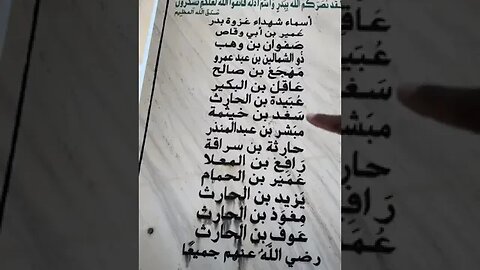 نصركم الله ببدر وأنتم أذلة فاتقوا الله لعلكم تشكرون
صدق الله العظيم
أسماء شهداء غزوة بدر
عمير بن أبي وقاص
صفوان بن وهب
ذو الشمالين بن عبد عمرو
مهجع بن صالح
عاقل بن البكير
عبيدة بن الحارث
سعد بن خيثمة
مبشر بن عبدالمنذر
حارثة بن سراقة
رافع بن المعلا
عمير بن الحمام
يزيد بن الحارث
معوذ بن الحارث
عوف بن الحارث
رضي الله عنهم جميعا